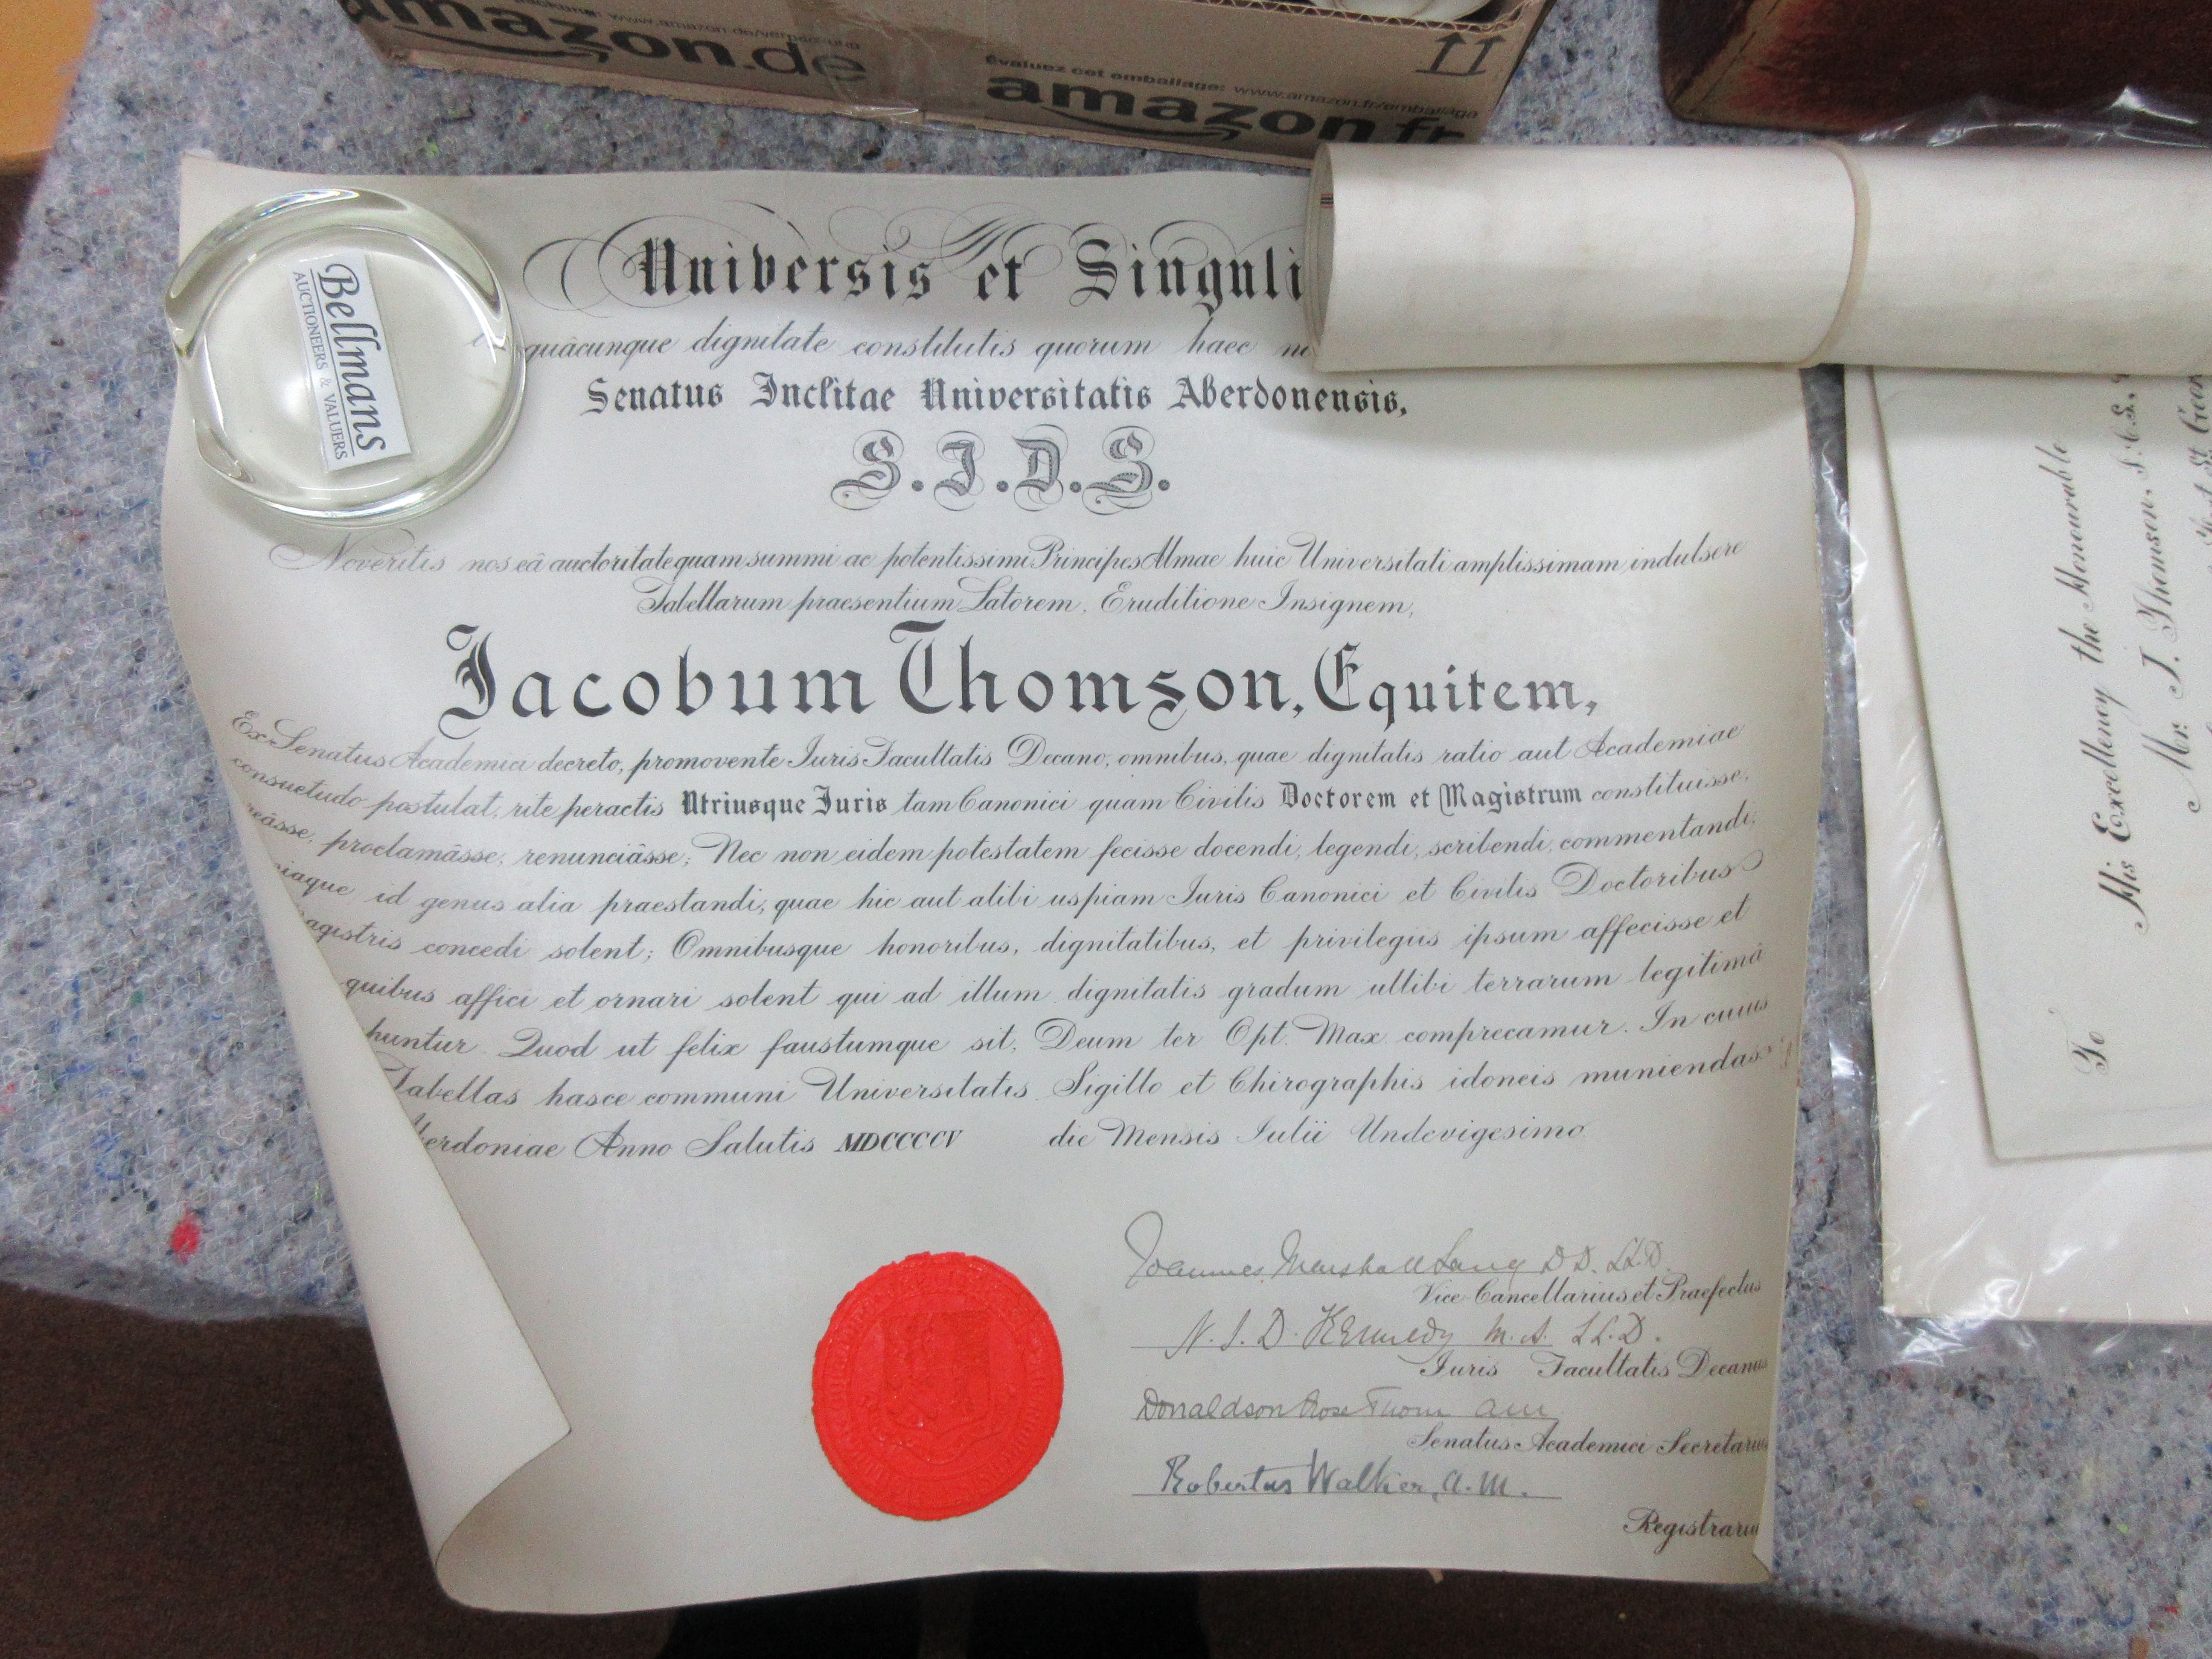 amazon.de
Évaluez cet emballage: www.amazon.fr/emballage
amazon.fr
Bellmans
AUCTIONEERS & VALUERS
Universis et Singuli
quâcunque dignitate constitutis quorum haec
Senatus Inclitae Universitatis Aberdonensis,
S.I.D.S.
Noveritis nos eâ auctoritate quam summi ac potentissimi Principes Almae huic Universitati amplissimam indulsere
Tabellarum praesentium Latorem, Eruditione Insignem,
Jacobum Thomson, Equitem,
Ex Senatus Academici decreto, promovente Iuris Facultatis Decano, omnibus, quae dignitatis ratio aut Academiae
consuetudo postulat, rite peractis Utriusque Juris tam Canonici quam Civilis Doctorem et Magistrum constituisse,
reâsse, proclamâsse, renunciâsse; Nec non eidem potestatem fecisse docendi, legendi, scribendi, commentandi,
niaque id genus alia praestandi, quae hic aut alibi uspiam Iuris Canonici et Civilis Doctoribus
agistris concedi solent; Omnibusque honoribus, dignitatibus, et privilegiis ipsum affecisse et
quibus affici et ornari solent qui ad illum dignitatis gradum ullibi terrarum legitimâ
huntur. Quod ut felix faustumque sit, Deum ter Opt. Max. comprecamur. In cuius
Tabellas hasce communi Universitatis Sigillo et Chirographis idoneis muniendas
erdoniae Anno Salutis MDCCCCV die Mensis Iulii Undevigesimo
Joannes Marshall Lang D.D. LL.D.
Vice-Cancellarius et Praefectus
N. J. D. Kennedy M.A. LL.D.
Iuris Facultatis Decanus
Donaldson Rose Thom AM
Senatus Academici Secretarius
Robertus Walker, A.M.
Registrariu
To
His Excellency the Honourable
Mr. J. Thomson, I.C.S.,